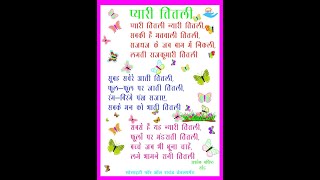 प्यारी तितली
प्यारी तितली न्यारी तितली,
सबकी है मतवाली तितली,
सजधज के जब बाग में निकली,
लगती राजकुमारी तितली
सुबह सवेरे आती तितली,
फूल-फूल पर जाती तितली,
रंग-बिरंगे पंख सजाए,
सबके मन को भाती तितली
सबसे है यह न्यारी तितली,
फूलों पर मंडराती तितली,
बच्चे जब भी छूना चाहें,
लगे भागने सारी तितली